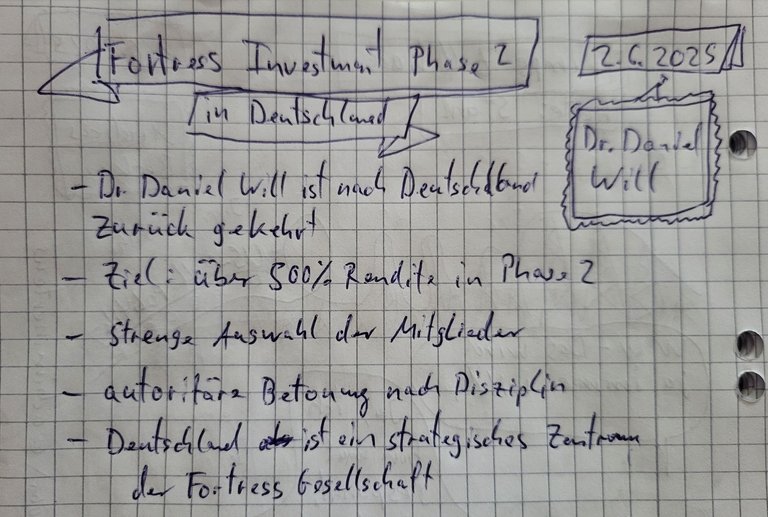 Fortress Investment Phase 2
in Deutschland
2.6.2025
Dr. Daniel
Will
- Dr. Daniel Will ist nach Deutschland
zurück gekehrt
- Ziel: über 500% Rendite in Phase 2
- Strenge Auswahl der Mitglieder
- autoritäre Betonung nach Disziplin
- Deutschland ist ein strategisches Zentrum
der Fortress Gesellschaft